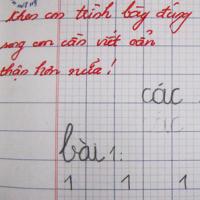 Khen con trình bày đúng
song con cần viết cẩn
thận hơn nữa!
các
bài 1:
1 1 1